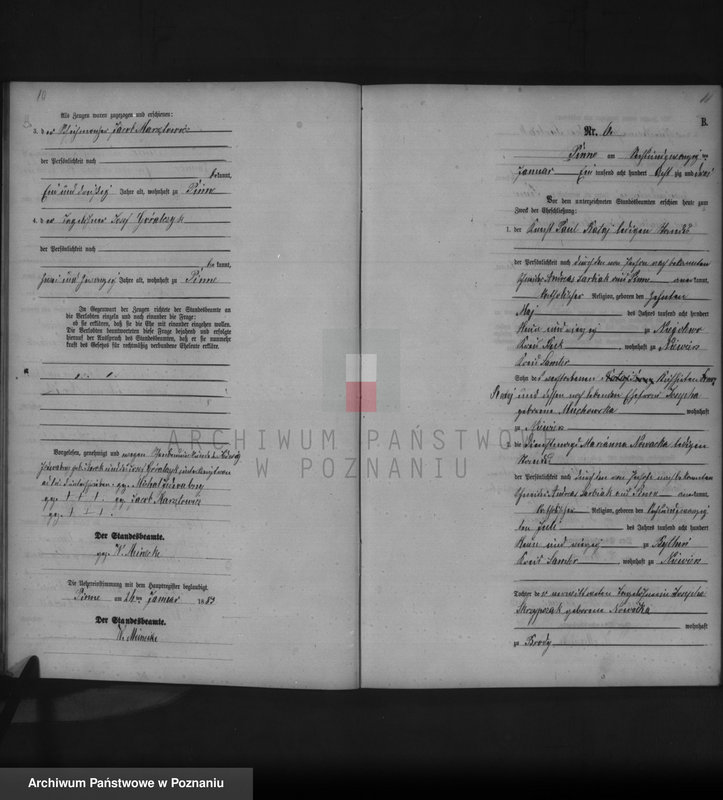 10
Als Zeugen waren zugezogen und erschienen:
3. der Jacob Marzlowicz
der Persönlichkeit nach
bekannt,
Ein und dreißig Jahre alt, wohnhaft zu Pinne
4. der Josef Góralczyk
der Persönlichkeit nach
bekannt,
zwei und zwanzig Jahre alt, wohnhaft zu Pinne
In Gegenwart der Zeugen richtete der Standesbeamte an
die Verlobten einzeln und nach einander die Frage:
ob sie erklären, daß sie die Ehe mit einander eingehen wollen.
Die Verlobten beantworteten diese Frage bejahend und erfolgte
hierauf der Ausspruch des Standesbeamten, daß er sie nunmehr
kraft des Gesetzes für rechtmäßig verbundene Eheleute erkläre.
Vorgelesen, genehmigt und wegen
und Josef Góralczyk
gez. Michal
gez. + + + . gez. Jacob Marzlowicz
gez. + + + .
Der Standesbeamte.
gez. W. Meinecke
Die Uebereinstimmung mit dem Hauptregister beglaubigt
Pinne am 26ten Januar 1883
Der Standesbeamte.
W. Meinecke
11
B.
Nr. 6.
Pinne am Sechsundzwanzigsten
Januar Ein tausend acht hundert acht zig und drei
Vor dem unterzeichneten Standesbeamten erschien heute zum
Zweck der Eheschließung:
1. der Knecht Paul Rataj ledigen Standes
der Persönlichkeit nach durch den von Person nach bekannten
Andreas Sarbiak aus Pinne anerkannt,
katholischer Religion, geboren den zehnten
Mai des Jahres tausend acht hundert
neun und vierzig zu
Kreis, wohnhaft zu Niewierz
Kreis Samter
Sohn des verstorbenen
Rataj und dessen noch lebenden Ehefrau Josepha
geborene Muchowska wohnhaft
zu Niewierz
2. die Dienstmagd Marianna Nowacka ledigen
Standes
der Persönlichkeit nach durch den von Person nach bekannten
Andreas Sarbiak aus Pinne anerkannt,
katholischer Religion, geboren den
ten Juli des Jahres tausend acht hundert
neun und vierzig zu
Kreis Samter, wohnhaft zu Niewierz
Tochter der verwittweten Josepha
Skrzypczak geborene Nowacka
wohnhaft
zu Brody
ARCHIWUM PAŃSTWOWE
W POZNANIU
Archiwum Państwowe w Poznaniu